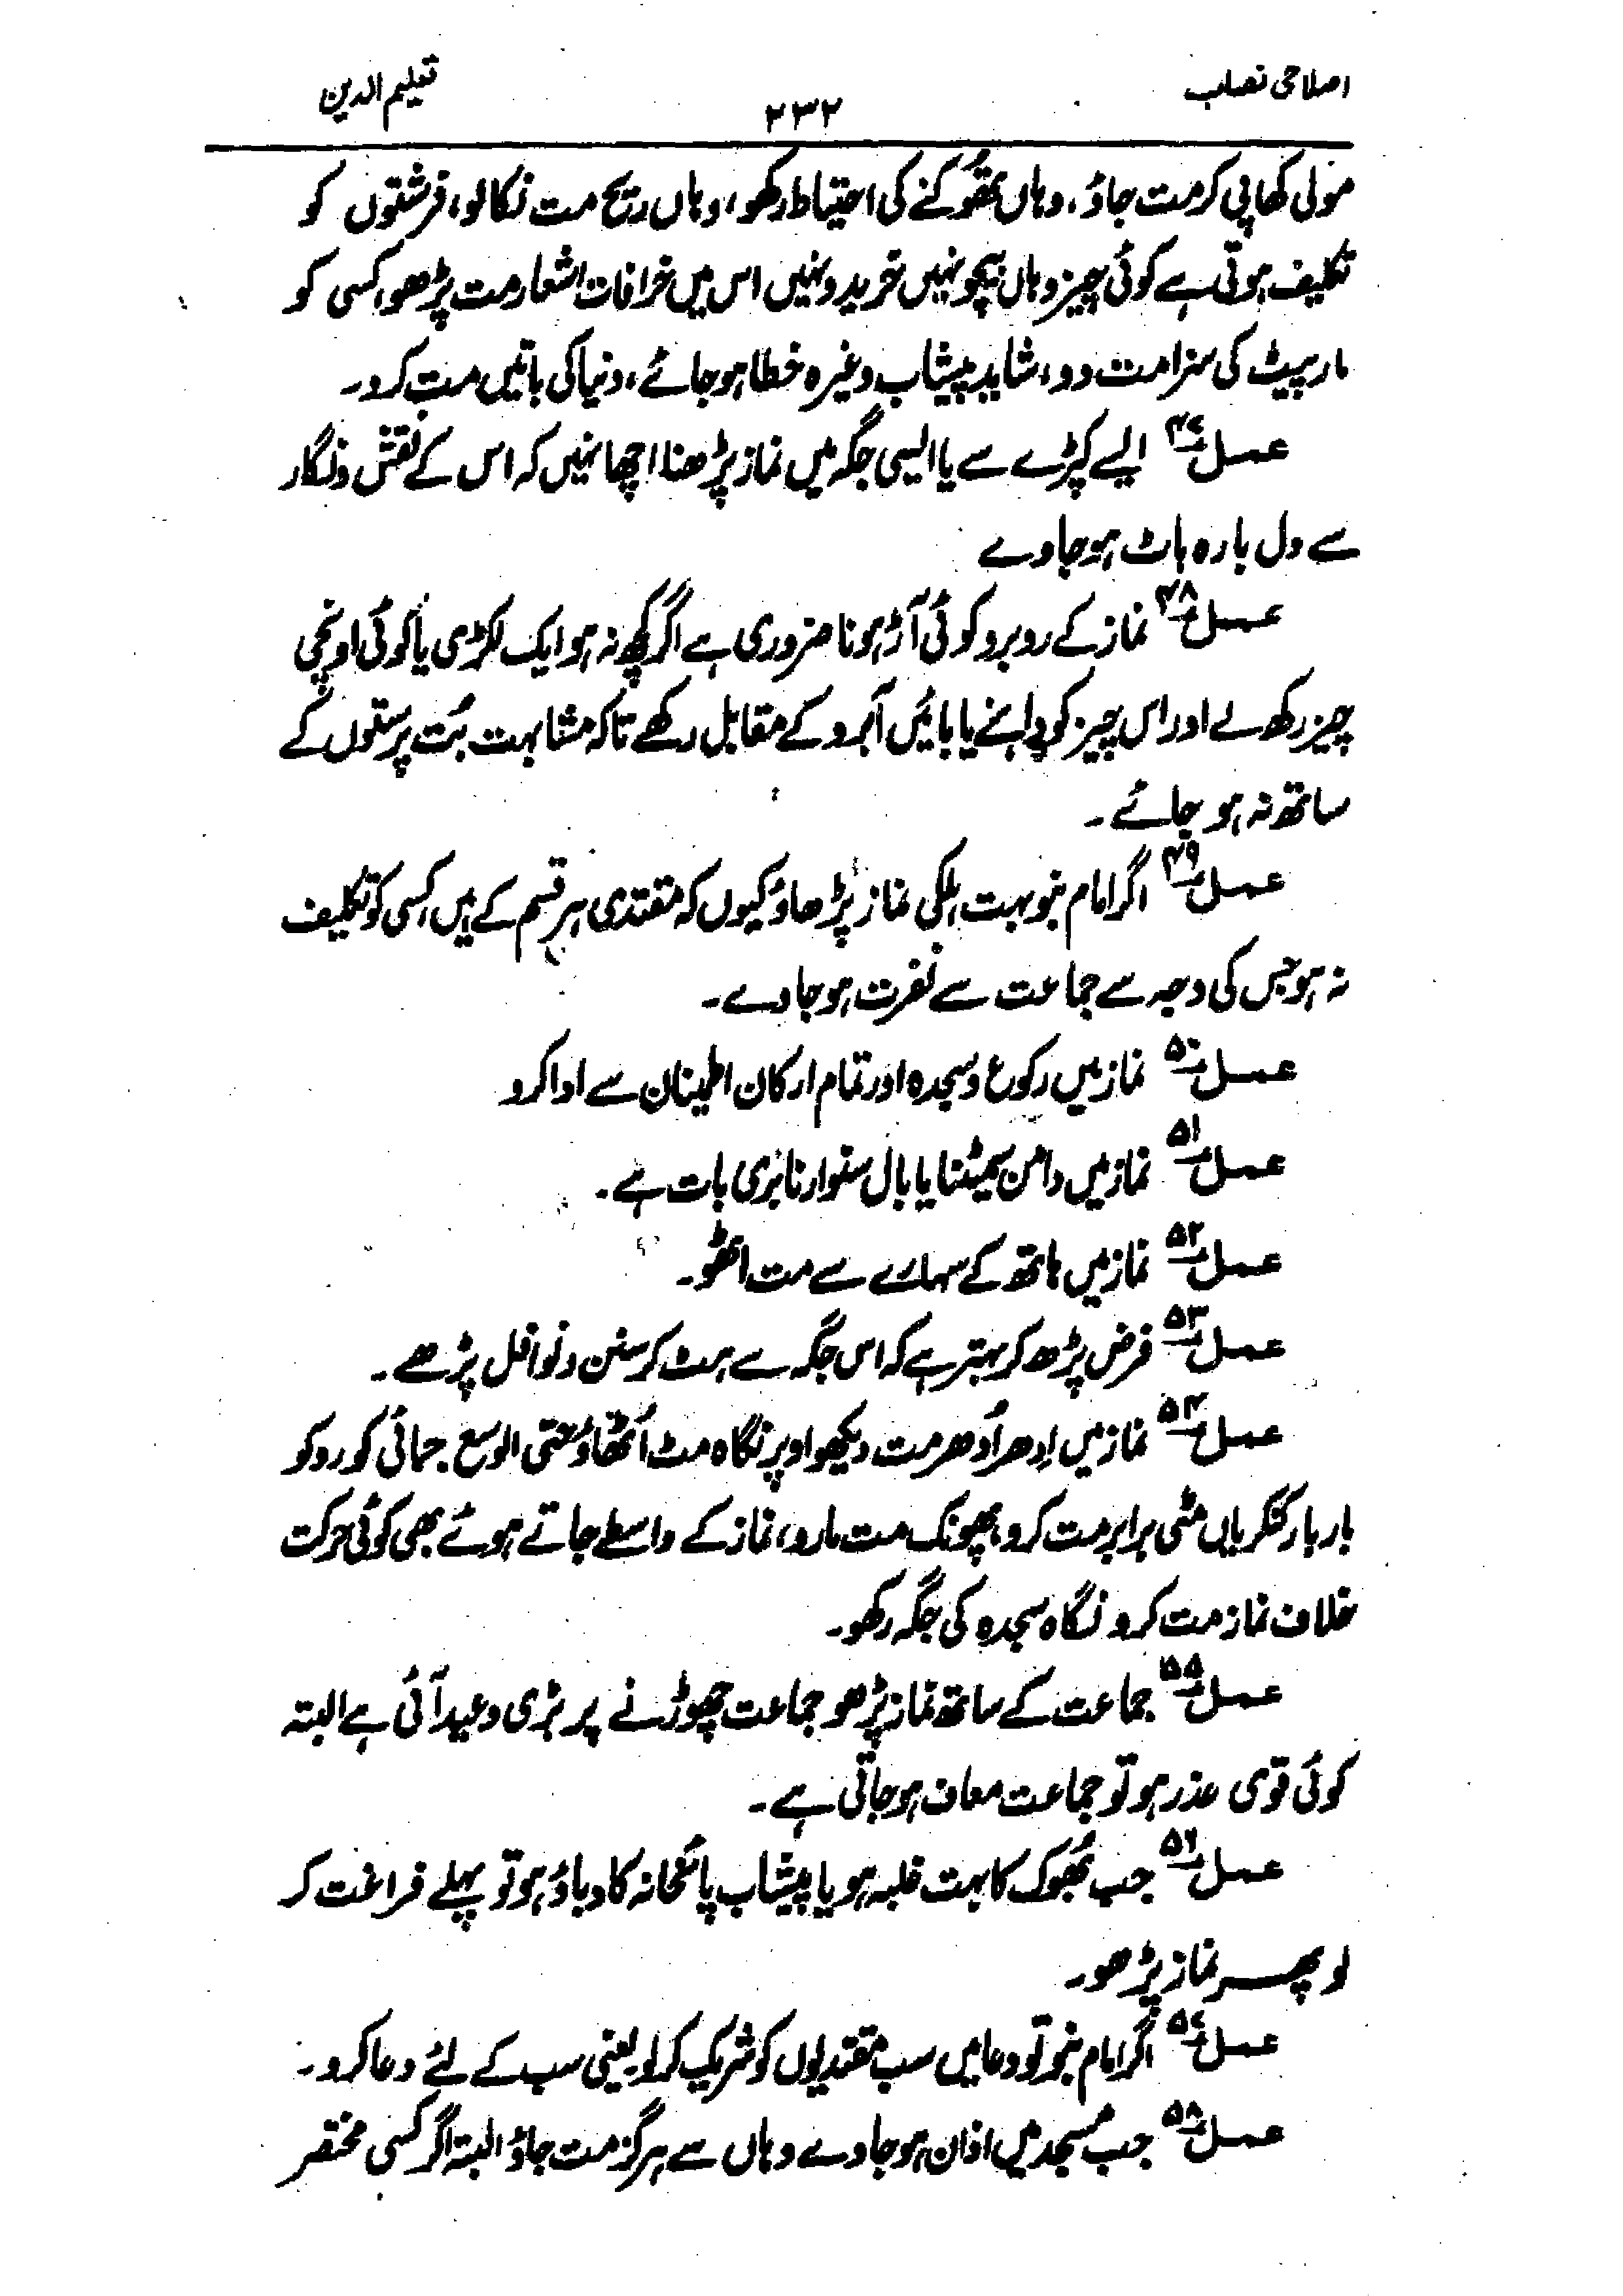 اصلاحی نصاب
۲۳۲
تعلیم الدین
مولی کھا پی کر مت جاؤ، وہاں تھوُکنے کی احتیاط رکھو، وہاں ریح مت نکالو، فرشتوں کو
تکلیف ہوتی ہے کوئی چیز وہاں بیچو نہیں خریدو نہیں اس میں خرافات اشعار مت پڑھو، کسی کو
مار پیٹ کی سزا مت دو، شاید پیشاب وغیرہ خطا ہو جائے، دنیا کی باتیں مت کرو۔
عمل ۴۷ ایسے کپڑے سے یا ایسی جگہ میں نماز پڑھنا اچھا نہیں کہ اس کے نقش و نگار
سے دل بارہ باٹ ہو جاوے
عمل ۴۸ نماز کے روبرو کوئی آڑ ہونا ضروری ہے اگر کچھ نہ ہو ایک لکڑی یا کوئی اونچی
چیز رکھ لے اور اس چیز کو داہنے یا بائیں آبرو کے مقابل رکھے تاکہ مشابہت بُت پرستوں کے
ساتھ نہ ہو جائے۔
عمل ۴۹ اگر امام بنو بہت ہلکی نماز پڑھاؤ کیوں کہ مقتدی ہر قسم کے ہیں، کسی کو تکلیف
نہ ہو جس کی وجہ سے جماعت سے نفرت ہو جاوے۔
عمل ۵۰ نماز میں رکوع و سجدہ اور تمام ارکان اطمینان سے ادا کرو
عمل ۵۱ نماز میں دامن سمیٹنا یا بال سنوارنا بُری بات ہے۔
عمل ۵۲ نماز میں ہاتھ کے سہارے سے مت اٹھو۔
عمل ۵۳ فرض پڑھ کر بہتر ہے کہ اس جگہ سے ہٹ کر سنن و نوافل پڑھے۔
عمل ۵۴ نماز میں اِدھر اُدھر مت دیکھو اوپر نگاہ مت اُٹھاؤ حتی الوسع جمائی کو روکو
بار بار کنکریاں مٹی برابر مت کرو، پھونک مت مارو، نماز کے واسطے جاتے ہوئے بھی کوئی حرکت
خلاف نماز مت کرو نگاہ سجدہ کی جگہ رکھو۔
عمل ۵۵ جماعت کے ساتھ نماز پڑھو جماعت چھوڑنے پر بڑی وعید آئی ہے البتہ
کوئی قوی عذر ہو تو جماعت معاف ہو جاتی ہے۔
عمل ۵۶ جب بھُوک کا بہت غلبہ ہو یا پیشاب پائخانہ کا دباؤ ہو تو پہلے فراغت کر
لو پھر نماز پڑھو۔
عمل ۵۷ اگر امام بنو تو دعا میں سب مقتدیوں کو شریک کر لو یعنی سب کے لئے دعا کرو۔
عمل ۵۸ جب مسجد میں اذان ہو جاوے وہاں سے ہرگز مت جاؤ البتہ اگر کسی مختصر